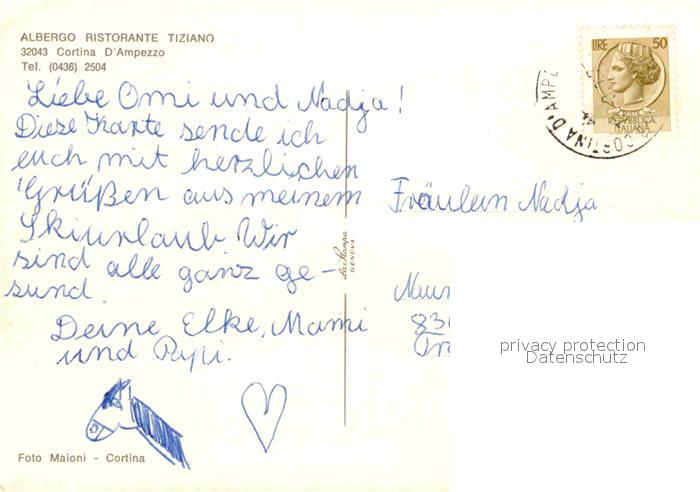 ALBERGO RISTORANTE TIZIANO
32043 Cortina D'Ampezzo
Tel. (0436) 2504
Liebe Omi und Nadja!
Diese Karte sende ich
euch mit herzlichen
Grüßen aus meinem
Skiurlaub Wir
sind alle ganz ge-
sund.
Deine Elke, Mami
und Papi.
Foto Maioni - Cortina
La Stampa
GENOVA
LIRE 50
REPUBBLICA
ITALIANA
CORTINA D'AMPE
Fräulein Nadja
privacy protection
Datenschutz